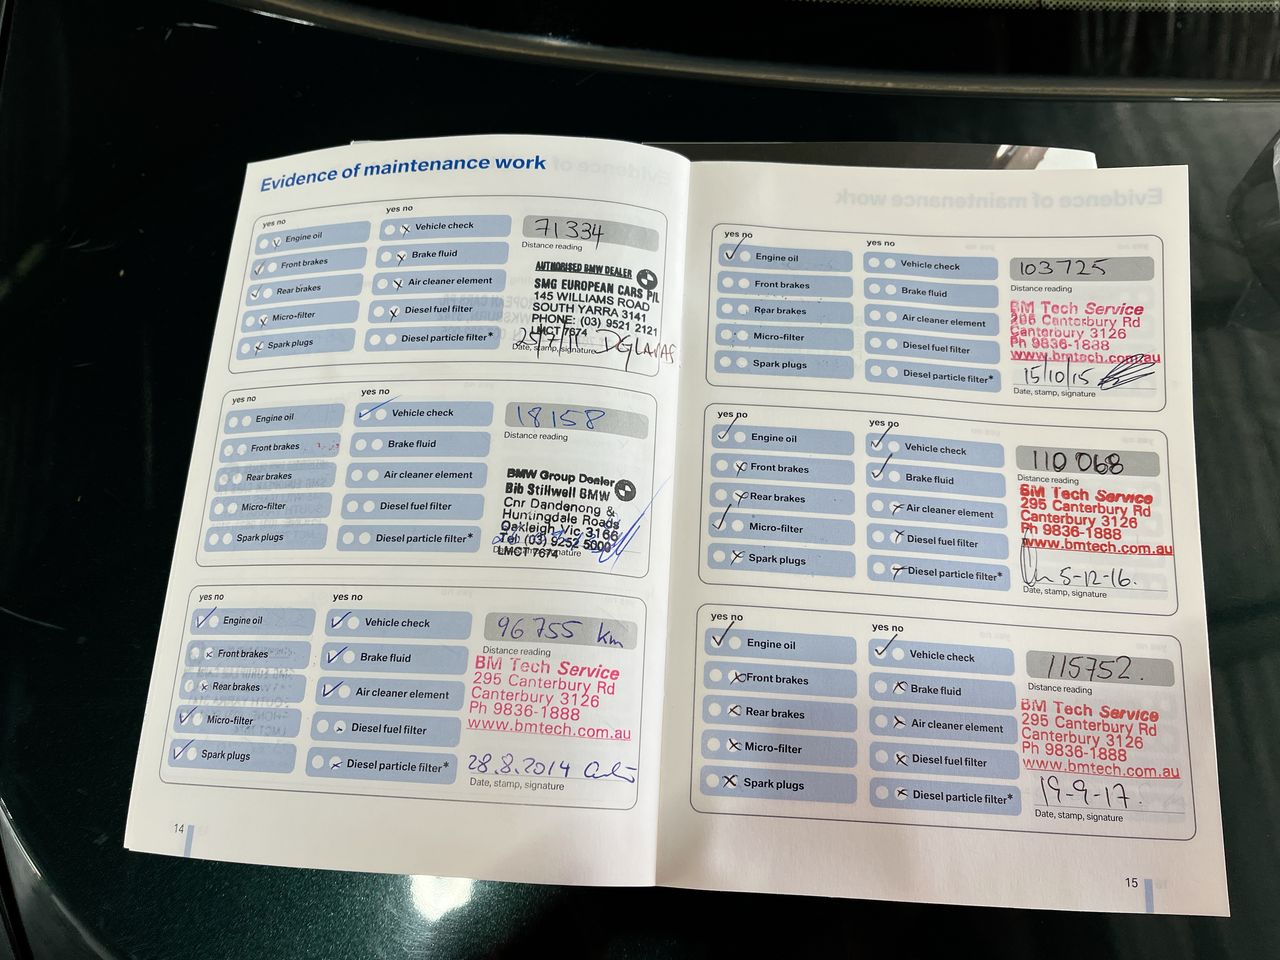 Evidence of maintenance work
yes no
yes no
Engine oil
Front brakes
Rear brakes
Micro-filter
Spark plugs
Vehicle check
Brake fluid
Air cleaner element
Diesel fuel filter
Diesel particle filter*
71334
Distance reading
AUTHORISED BMW DEALER
SMG EUROPEAN CARS P/L
145 WILLIAMS ROAD
SOUTH YARRA 3141
PHONE: (03) 9521 2121
LMCT 7674
25/7/11
Date, stamp, signature
yes no
yes no
Engine oil
Front brakes
Rear brakes
Micro-filter
Spark plugs
Vehicle check
Brake fluid
Air cleaner element
Diesel fuel filter
Diesel particle filter*
18158
Distance reading
BMW Group Dealer
Bib Stillwell BMW
Cnr Dandenong &
Huntingdale Roads
Oakleigh Vic 3166
Tel: (03) 9252 5000
LMCT 7674
signature
yes no
yes no
Engine oil
Front brakes
Rear brakes
Micro-filter
Spark plugs
Vehicle check
Brake fluid
Air cleaner element
Diesel fuel filter
Diesel particle filter*
96755 km
Distance reading
BM Tech Service
295 Canterbury Rd
Canterbury 3126
Ph 9836-1888
www.bmtech.com.au
28.8.2014
Date, stamp, signature
14
yes no
yes no
Engine oil
Front brakes
Rear brakes
Micro-filter
Spark plugs
Vehicle check
Brake fluid
Air cleaner element
Diesel fuel filter
Diesel particle filter*
103725
Distance reading
BM Tech Service
295 Canterbury Rd
Canterbury 3126
Ph 9836-1888
www.bmtech.com.au
15/10/15
Date, stamp, signature
yes no
yes no
Engine oil
Front brakes
Rear brakes
Micro-filter
Spark plugs
Vehicle check
Brake fluid
Air cleaner element
Diesel fuel filter
Diesel particle filter*
110 068
Distance reading
BM Tech Service
295 Canterbury Rd
Canterbury 3126
Ph 9836-1888
www.bmtech.com.au
5-12-16.
Date, stamp, signature
yes no
yes no
Engine oil
Front brakes
Rear brakes
Micro-filter
Spark plugs
Vehicle check
Brake fluid
Air cleaner element
Diesel fuel filter
Diesel particle filter*
115752.
Distance reading
BM Tech Service
295 Canterbury Rd
Canterbury 3126
Ph 9836-1888
www.bmtech.com.au
19-9-17.
Date, stamp, signature
15